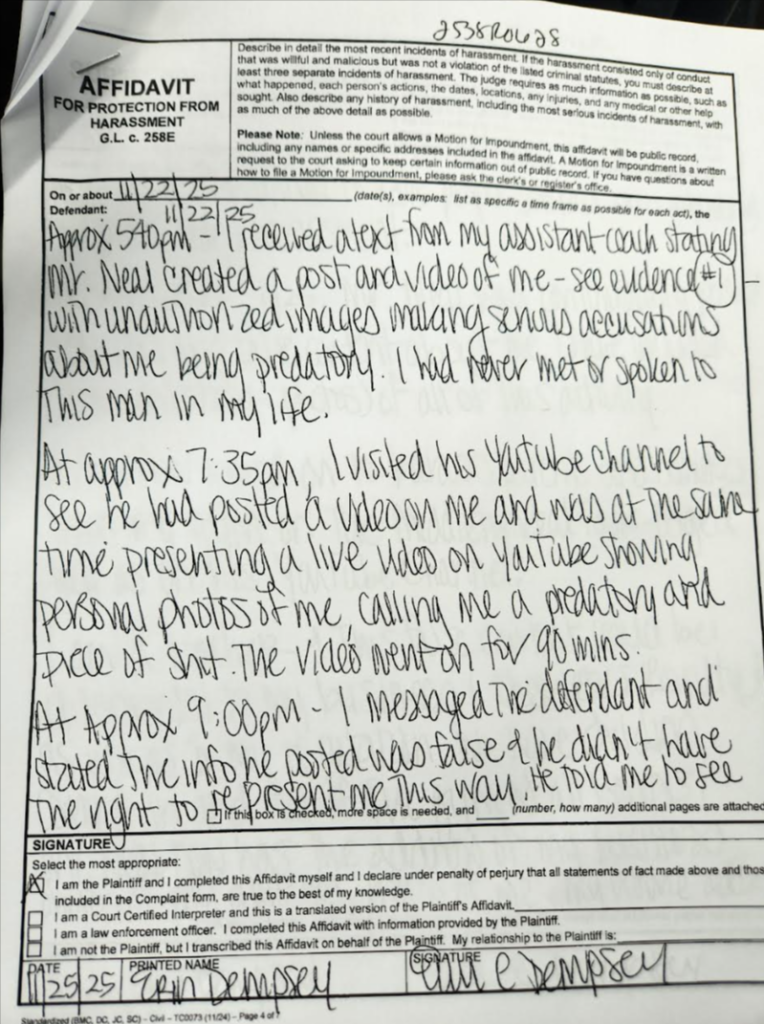 2538R0628
AFFIDAVIT
FOR PROTECTION FROM
HARASSMENT
G.L. c. 258E
Describe in detail the most recent incidents of harassment. If the harassment consisted only of conduct
that was willful and malicious but was not a violation of the listed criminal statutes, you must describe at
least three separate incidents of harassment. The judge requires as much information as possible, such as
what happened, each person's actions, the dates, locations, any injuries, and any medical or other help
sought. Also describe any history of harassment, including the most serious incidents of harassment, with
as much of the above detail as possible.
Please Note: Unless the court allows a Motion for Impoundment, this affidavit will be public record,
including any names or specific addresses included in the affidavit. A Motion for Impoundment is a written
request to the court asking to keep certain information out of public record. If you have questions about
how to file a Motion for Impoundment, please ask the clerk's or register's office.
On or about 11/22/25 (date(s), examples: list as specific a time frame as possible for each act), the
Defendant: 11/22/25
Approx 540pm - I received a text from my assistant coach stating
Mr. Neal created a post and video of me - see evidence #1
with unauthorized images making serious accusations
about me being predatory. I had never met or spoken to
this man in my life.
At approx 7:35pm, I visited his YouTube channel to
see he had posted a video on me and was at the same
time presenting a live video on YouTube showing
personal photos of me, calling me a predatory and
piece of shit. The video went on for 90 mins.
At Approx 9:00pm - I messaged the defendant and
stated the info he posted was false & he didn't have
the right to represent me this way. He told me to see
If this box is checked, more space is needed, and ____ (number, how many) additional pages are attached
SIGNATURE
Select the most appropriate:
I am the Plaintiff and I completed this Affidavit myself and I declare under penalty of perjury that all statements of fact made above and thos
included in the Complaint form, are true to the best of my knowledge.
I am a Court Certified Interpreter and this is a translated version of the Plaintiff's Affidavit.
I am a law enforcement officer. I completed this Affidavit with information provided by the Plaintiff.
I am not the Plaintiff, but I transcribed this Affidavit on behalf of the Plaintiff. My relationship to the Plaintiff is:
DATE PRINTED NAME SIGNATURE
11/25/25 Erin Dempsey Erin C Dempsey
Standardized (BMC, DC, JC, SC) – Civil – TC0073 (11/24) – Page 4 of 7